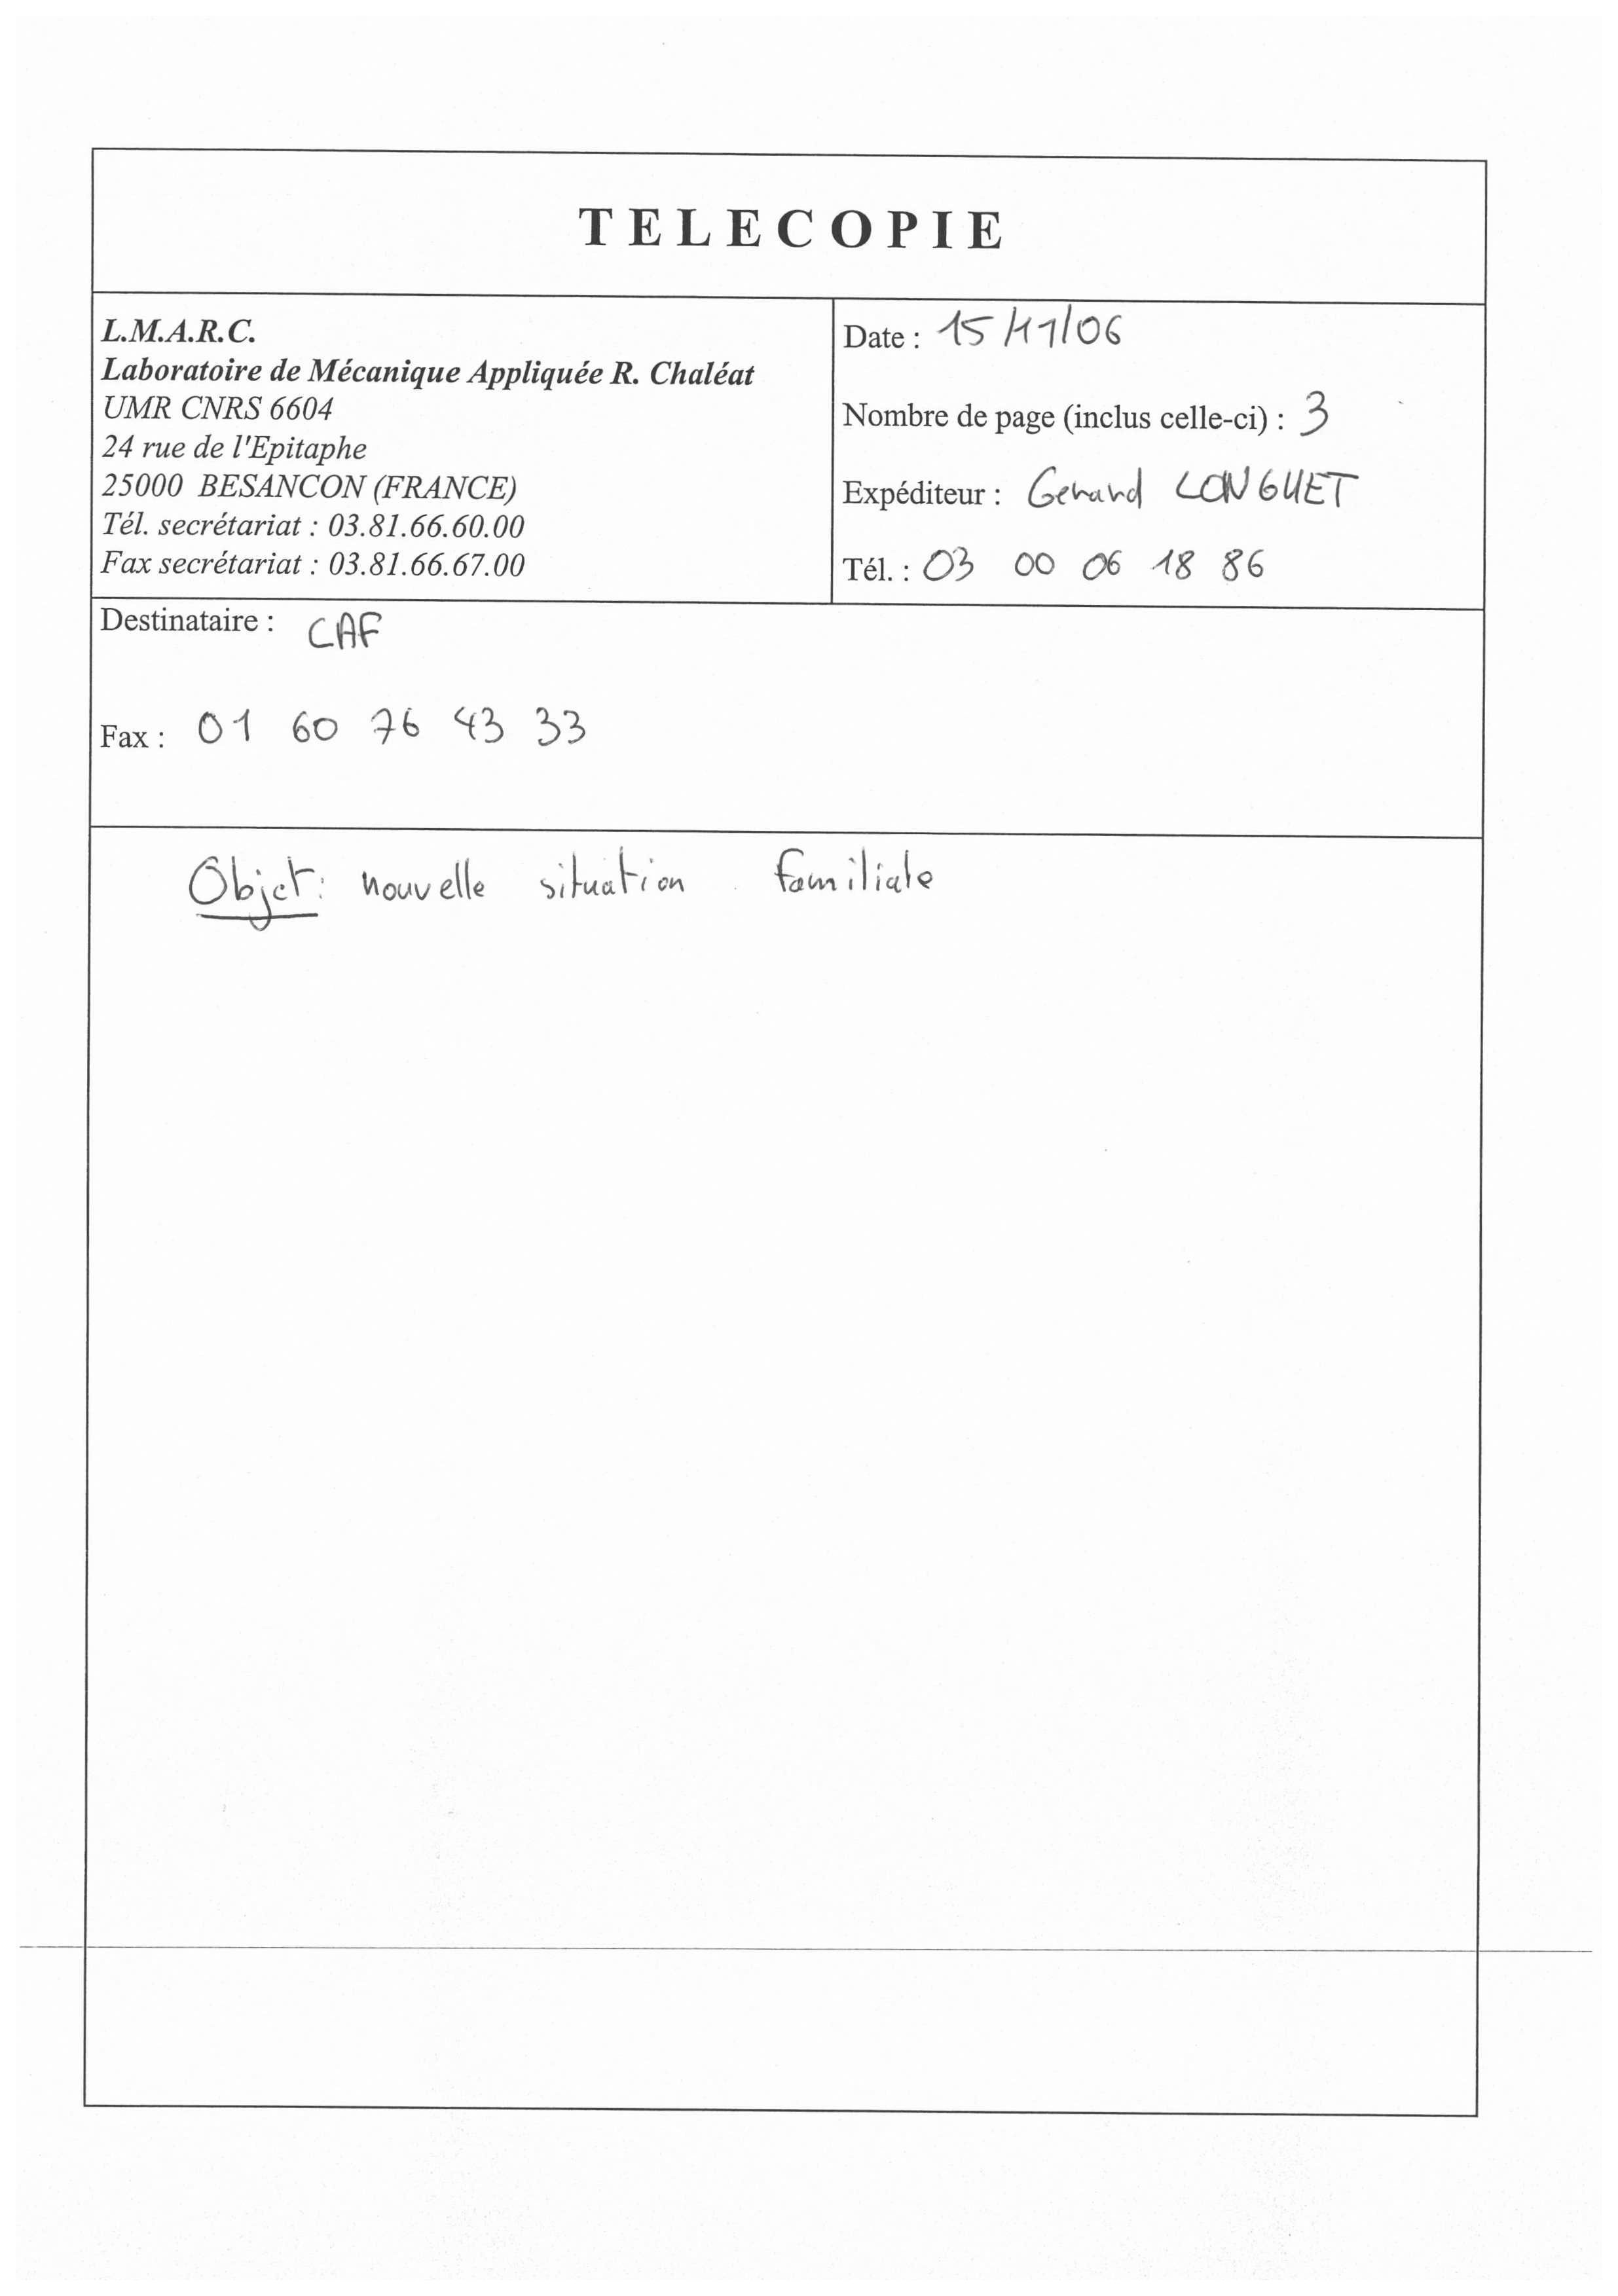 TELECOPIE
L.M.A.R.C.
Laboratoire de Mécanique Appliquée R. Chaléat
UMR CNRS 6604
24 rue de l'Epitaphe
25000 BESANCON (FRANCE)
Tél. secrétariat : 03.81.66.60.00
Fax secrétariat : 03.81.66.67.00
Date : 15/11/06
Nombre de page (inclus celle-ci) : 3
Expéditeur : Gerard LONGUET
Tél. : 03 00 06 18 86
Destinataire : CAF
Fax : 01 60 76 43 33
Objet : nouvelle situation familiale